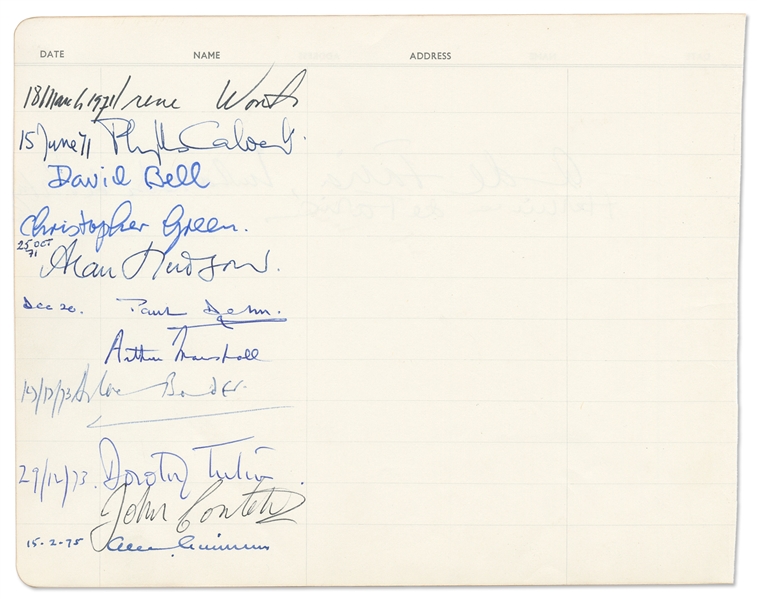 DATE NAME ADDRESS
18/March 1971/ Irene Worth
15 June 71 Phyllis Calvert.
David Bell
Christopher Green.
25 OCT 71 Alan Hudson.
Dec 20. Paul Dehn.
Arthur Marshall
14/12/73
29/12/73. Dorothy Tutin.
John
15-2-75 Alec Guinness